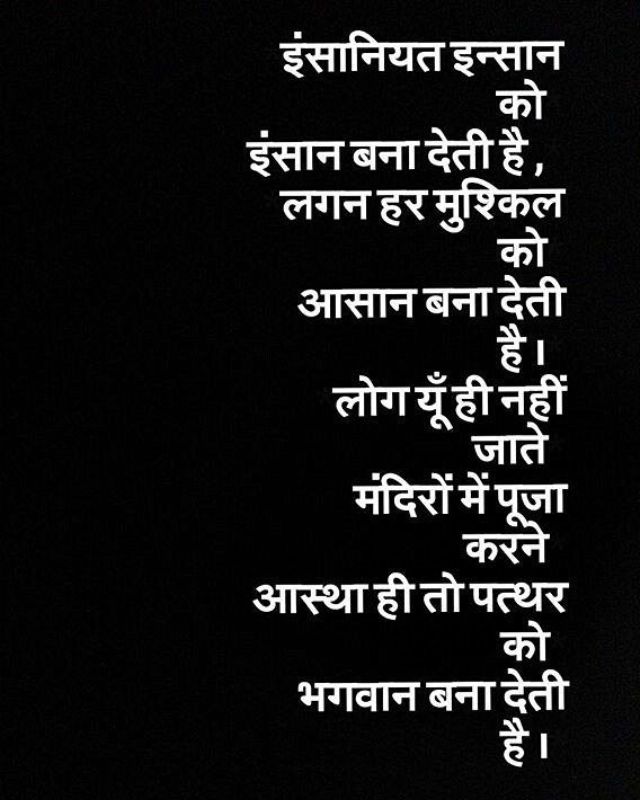 इंसानियत इन्सान
को
इंसान बना देती है ,
लगन हर मुश्किल
को
आसान बना देती
है।
लोग यूँ ही नहीं
जाते
मंदिरों में पूजा
करने
आस्था ही तो पत्थर
को
भगवान बना देती
है।